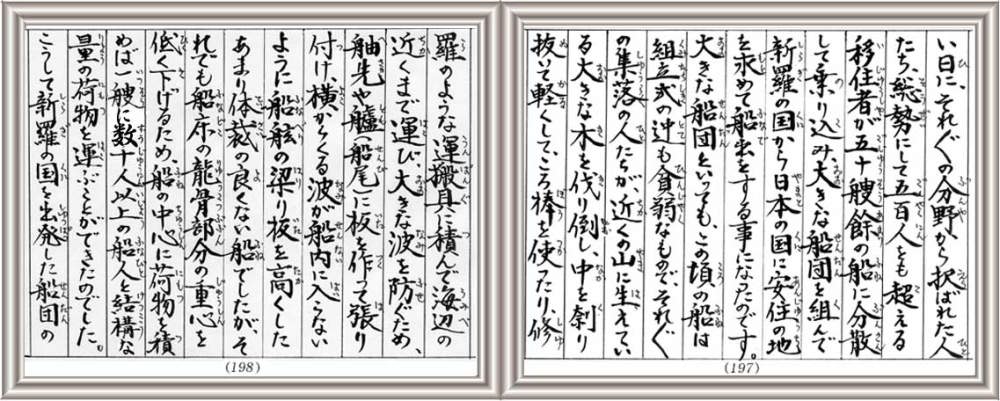 い日に、それ〴〵の分野から択ばれた人
たち、総勢にして五百人をも超える
移住者が五十艘餘の船に分散
して乗り込み、大きな船団を組んで
新羅の国から日本の国に安住の地
を求めて船出をする事になったのです。
大きな船団といっても、この頃の船は
組立式の迚も貧弱なもので、それ〴〵
の集落の人たちが、近くの山に生えてい
る大きな木を伐り倒し、中を刳り
抜いて軽くして、ころ棒を使ったり、修
(197)
羅のような運搬具に積んで海辺の
近くまで運び、大きな波を防ぐため、
舳先や艫(船尾)に板を作って張り
付け、横からくる波が船内に入らない
ように船舷の梁り板を高くした
あまり体裁の良くない船でしたが、そ
れでも船床の龍骨部分の重心を
低く下げるため、船の中心に荷物を積
めば一艘に数十人以上の船人と結構な
量の荷物を運ぶことができたのでした。
こうして新羅の国を出発した船団の
(198)